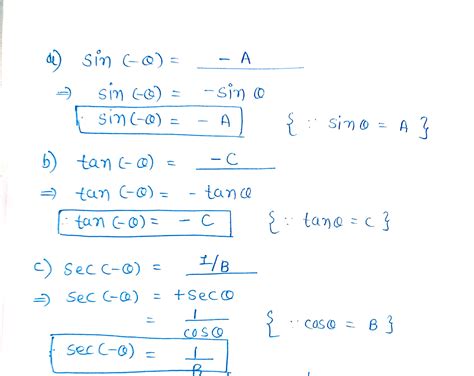 a) sin (-θ) = - A
⇒ sin (-θ) = - sin θ
∴ sin (-θ) = - A { ∵ sin θ = A }
b) tan (-θ) = - C
⇒ tan (-θ) = - tan θ
∴ tan (-θ) = - C { ∵ tan θ = C }
c) sec (-θ) = 1/B
⇒ sec (-θ) = + sec θ
= 1/cos θ { ∵ cos θ = B }
∴ sec (-θ) = 1/B